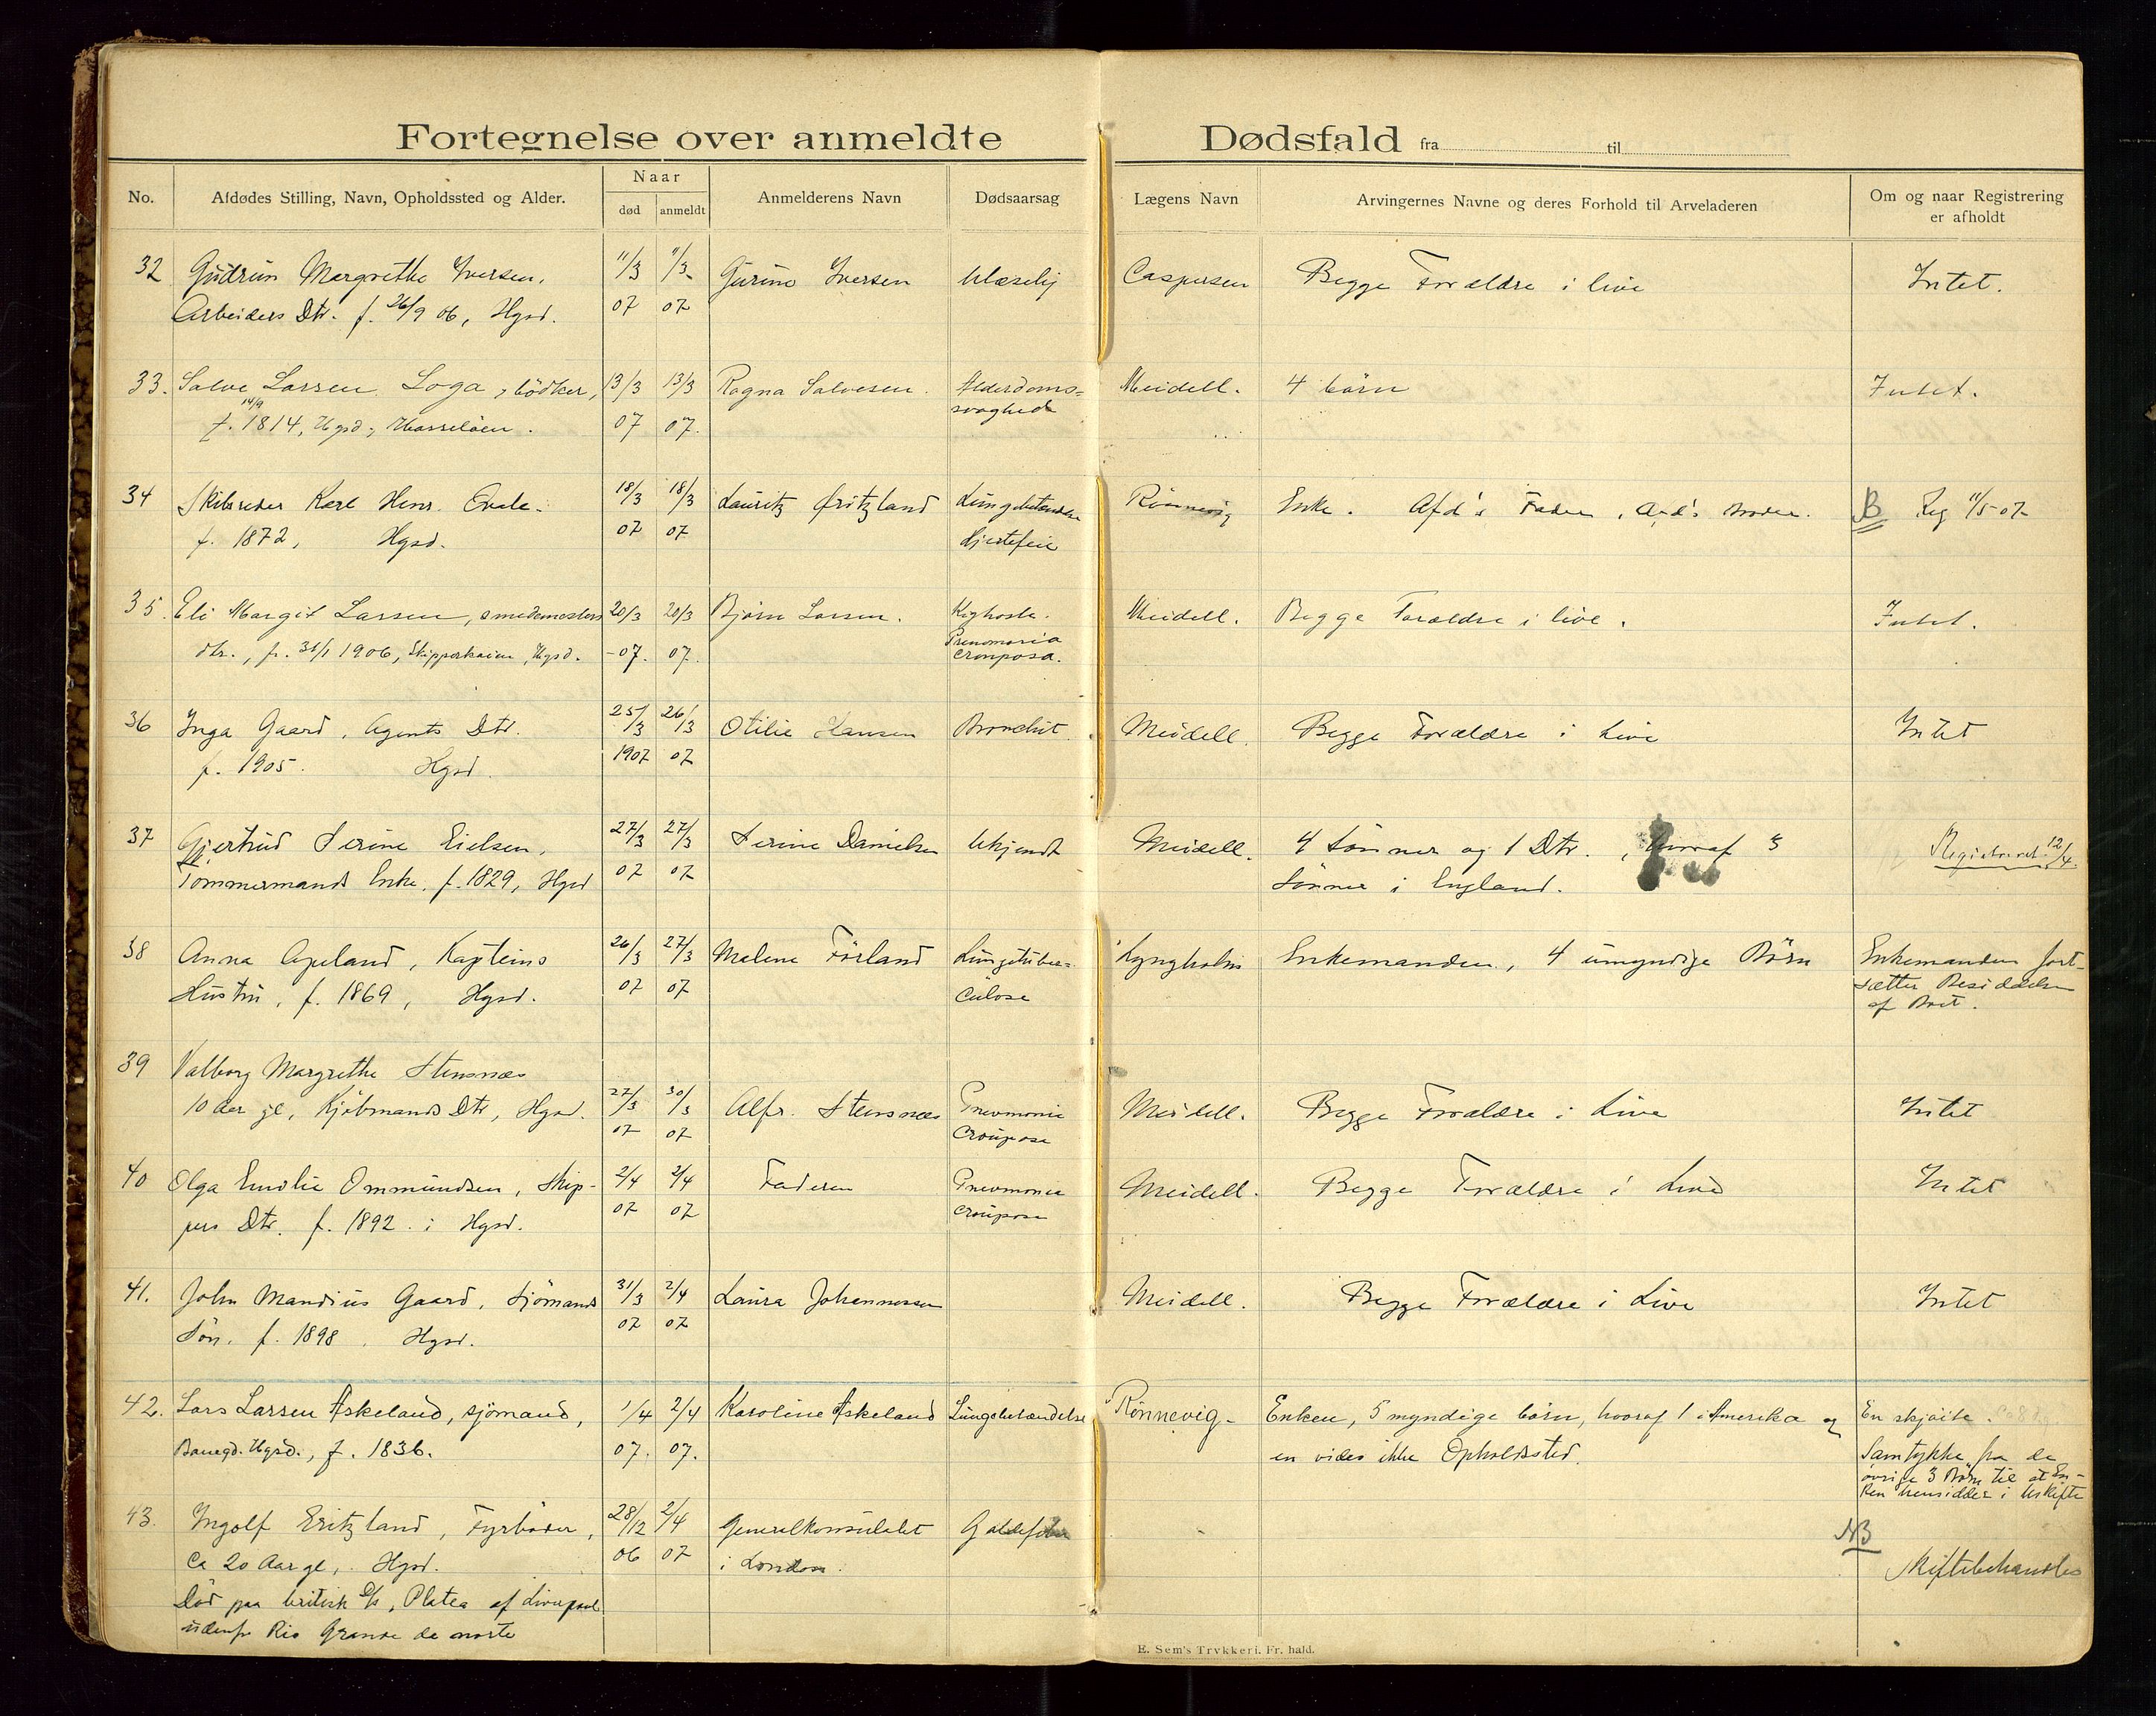 Fortegnelse over anmeldte Dødsfald fra til
No. Afdødes Stilling, Navn, Opholdssted og Alder. Naar død anmeldt Anmelderens Navn Dødsaarsag Lægens Navn Arvingernes Navne og deres Forhold til Arveladeren Om og naar Registrering
er afholdt
32 Gudrun Margrethe Iversen, 11/3 11/3 Gurine Iversen Caspersen Begge Forældre i live Intet.
Arbeiders Dtr. f. 26/9 06, Hgsd. 07 07
33. Salve Larsen Loga, bödker, 13/3 13/3 Ragna Salvesen. Alderdoms- Meidell. 4 börn Intet.
14/9
f. 1814, Hgsd, Hasselöen. 07 07. svaghed
34 Skibsreder Karl Henr. 18/3 18/3 Lauritz Lungebetændelse Rönnevig Enke. Afd's Fader, Afd's Moder. Reg 11/5 07
f. 1872, Hgsd. 07 07 Hjertefeil
35. Eli Margit Larsen, smedemesters 20/3 20/3 Bjørn Larsen. Kighoste. Meidell. Begge Forældre i live. Intet.
dtr., f. 31/1 1906, Skipperkaien, Hgsd. -07. 07. Pneumonia
crouposa.
36 Inga Gaard, Agents Dtr. 25/3 26/3 Otilie Hansen Bronchit Meidell. Begge Forældre i Live Intet
f. 1905. Hgsd. 1907 07
37 Gjertrud Serine Eielsen, 27/3 27/3 Serine Danielsen Ukjendt Meidell. 4 Sönner og 1 Dtr., hvoraf 3 Registreret 12/4
Tömmermands Enke, f. 1829, Hgsd 07 07 Sönner i England.
38 Anna Apeland, Kapteins 26/3 27/3 Malene Förland Lungetuber- Lyngholm Enkemanden, 4 umyndige Börn Enkemanden fort-
Hustru, f. 1869, Hgsd. 07 07 culose sætter Besiddelsen
af Boet.
39 Valborg Margrethe Stensnæs
10 Aar gl, Kjöbmands Dtr, Hgsd. 27/3 30/3 Alfr. Stensnæs Pneumonia Meidell. Begge Forældre i Live Intet
07 07 crouposa
40 Olga Emilie Ommundsen, Skip- 2/4 2/4 Faderen Pneumonia Meidell. Begge Forældre i Live Intet
pers Dtr. f. 1892. i Hgsd. 07 07 crouposa
41. John Mandius Gaard, Sjömands 31/3 2/4 Laura Johannessen Meidell. Begge Forældre i Live Intet
Sön. f. 1898. Hgsd. 07 07
42. Lars Larsen Askeland, sjömand, 1/4 2/4 Karoline Askeland Lungebetændelse Rönnevig. Enken, 5 myndige börn, hvoraf 1 i Amerika og En skjöite.
Hgsd., f. 1836. 07. 07. en vides ikke Opholdssted. Samtykke fra de
övrige 3 Börn til at En-
ken hensidder i Uskifte
43. Ingolf Eritzland, Fyrböder, 28/12 2/4 Generalkonsulatet NB
Ca 20 Aar gl, Hgsd. 06 07 i London. Skiftebehandles
Död paa britisk D/s, Platea af Liverpool
udenfr Rio Grande de norte
E. Sem's Trykkeri. Fr. hald.